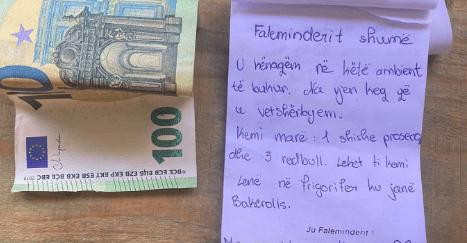 100
BCE ECB ЕЦБ EZB EKP EKT ESB EKB BĊE EBC 2019
Faleminderit shumë
U hënagëm në këtë ambient
të bukur. Na vjen keq që
u vetshërbyem.
Kemi marë: 1 shishe prosecco
dhe 3 redbull. Lehet ti kemi
Lenë në frigorifer ku janë
Bakerolls.
Ju Faleminderit!